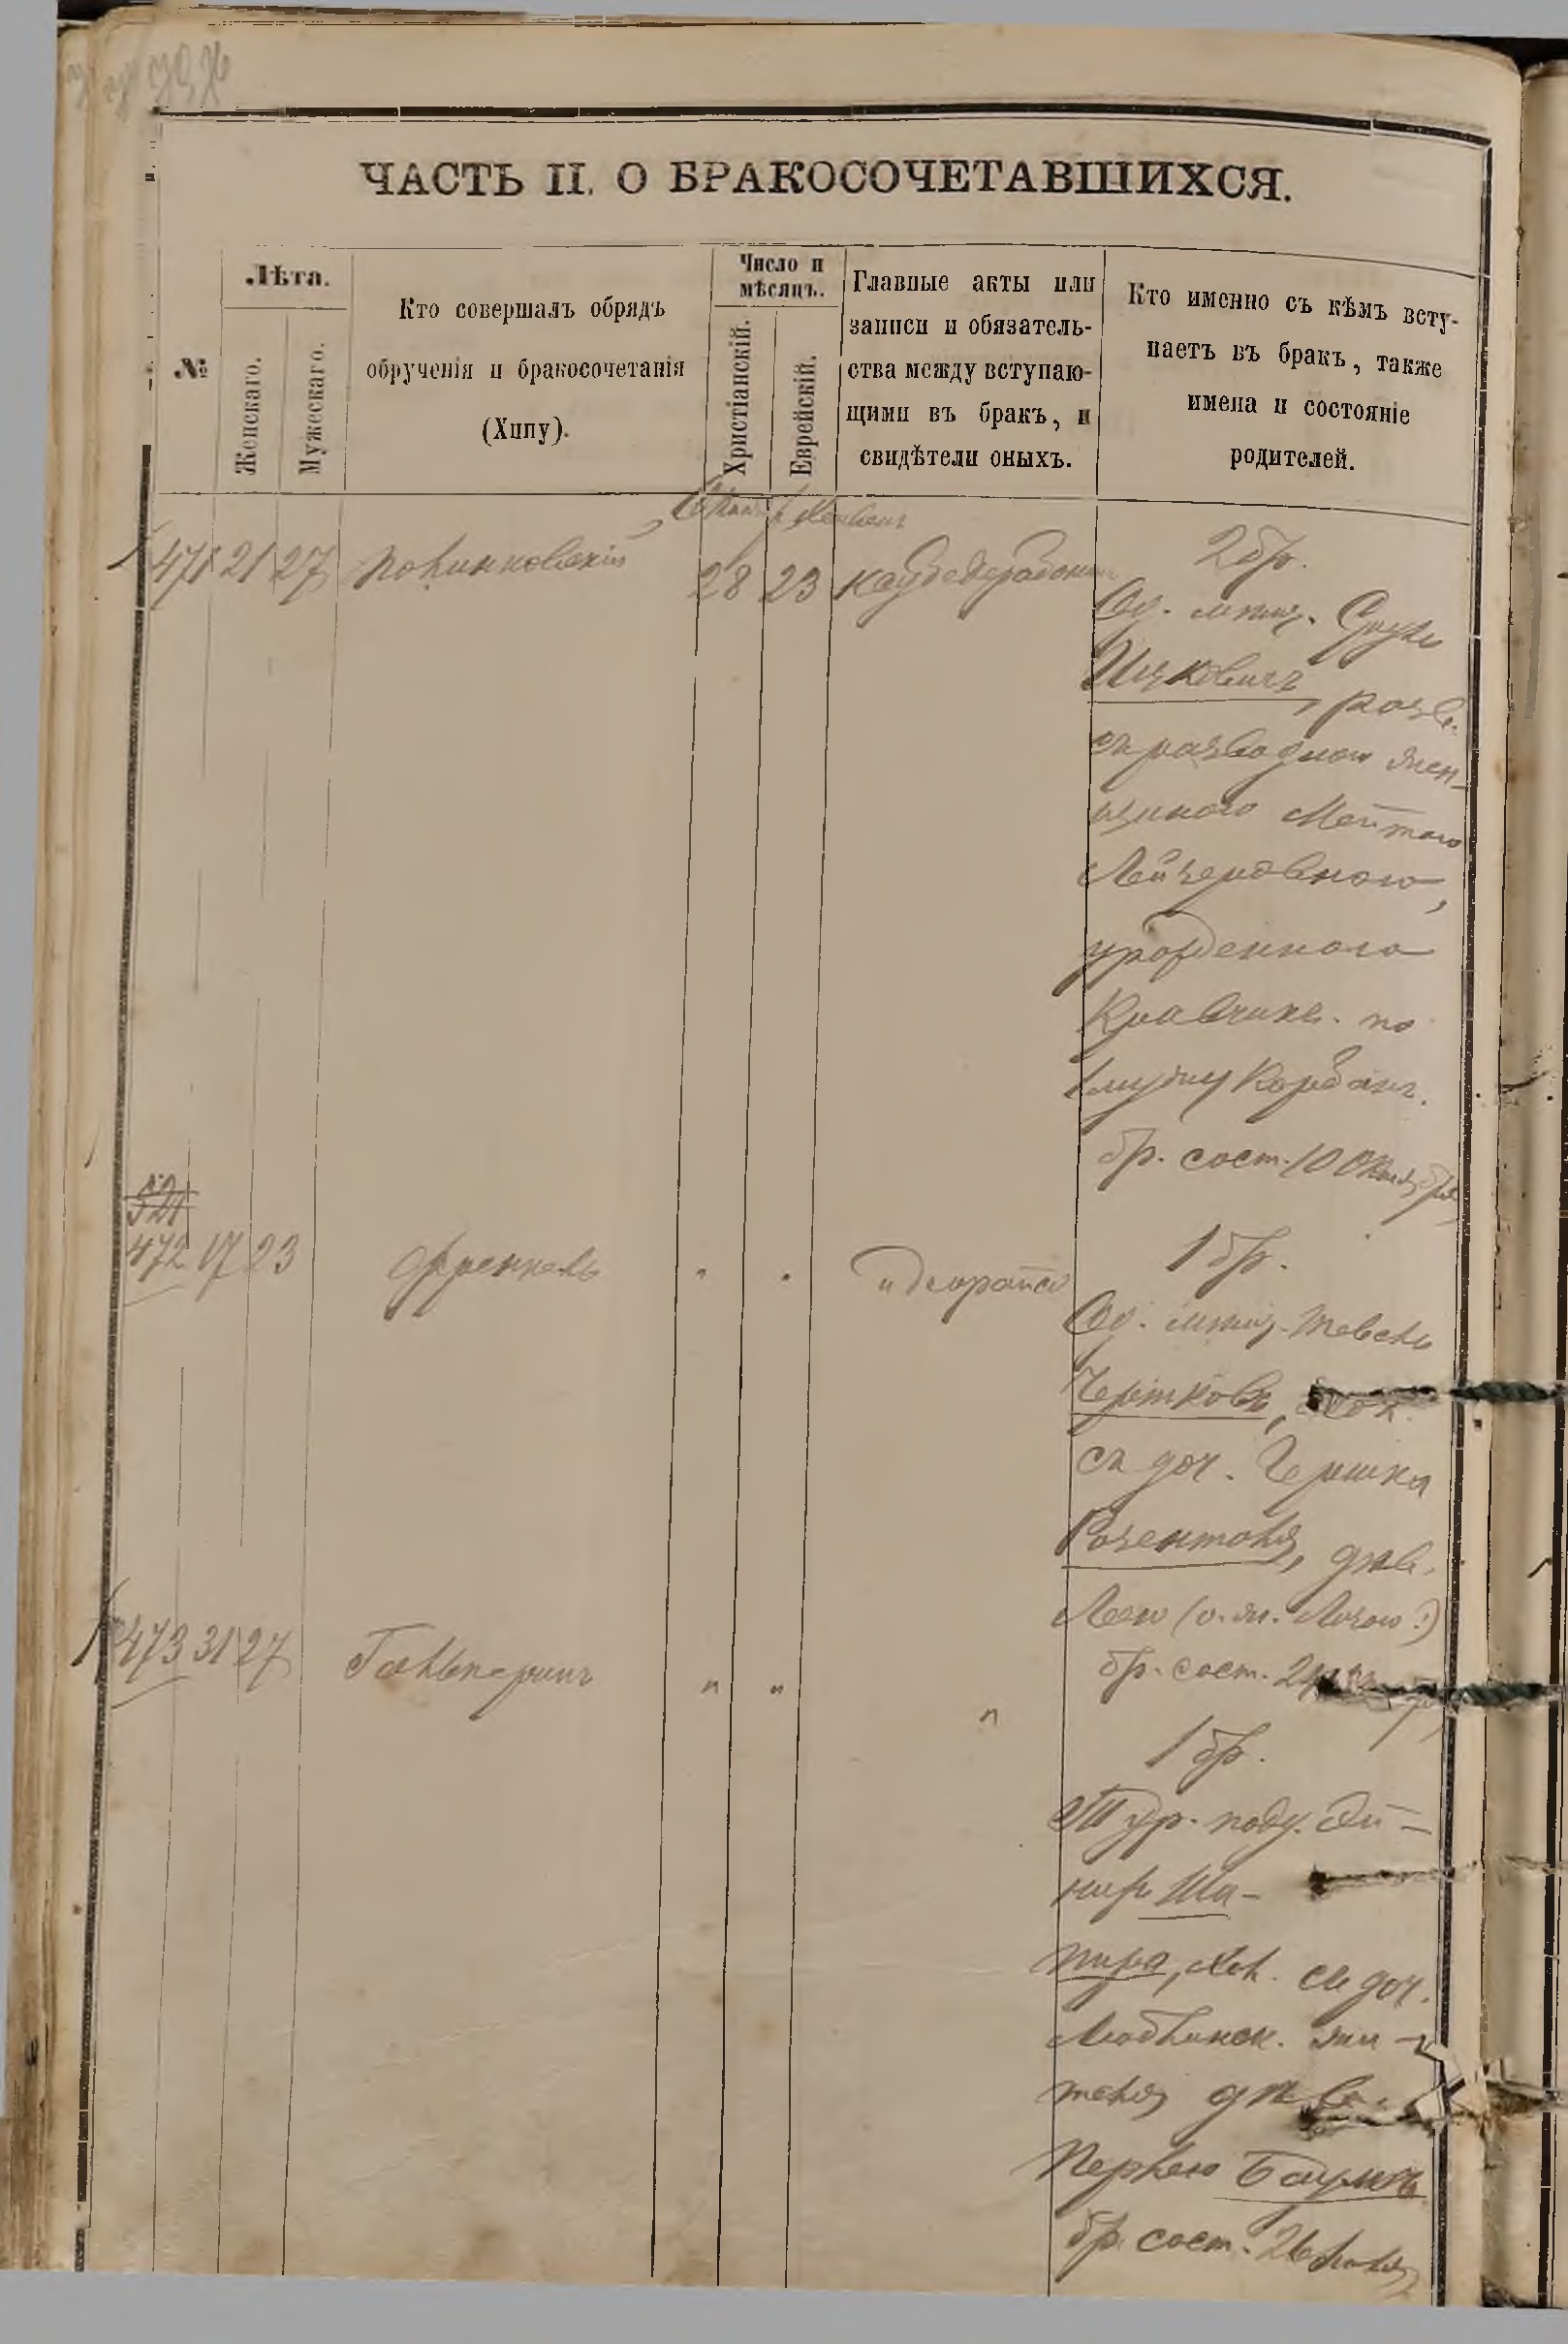 ЧАСТЬ II. О БРАКОСОЧЕТАВШИХСЯ.
№
Лѣта.
Женскаго.
Мужескаго.
Кто совершалъ обрядъ
обрученія и бракосочетанія
(Хипу).
Число и
мѣсяцъ.
Христіанскій.
Еврейскій.
Главные акты или
записи и обязатель-
ства между вступаю-
щими въ бракъ, и
свидѣтели оныхъ.
Кто именно съ кѣмъ всту-
паетъ въ бракъ, также
имена и состояніе
родителей.
471 21 27 Полинковскій 28 23
2 бр.
Од. мѣщ. Сруль
Ицковичъ, разв.
съ разводною жен-
щиною Мейтою
Лейзеровною,
урожденною
Кравчикъ. по
мужу Корбанъ.
бр. сост. 10 Октября
521
472 17 23 Френкель " "
1 бр.
Од. мѣщ.
Чертковъ, хол.
съ доч. Гершка
Розенталя, дѣв.
Леею
бр. сост.
473 31 27 Гальперинъ " " "
1 бр.
Тур. подд.
Ша-
пира, хол. съ доч.
Люблинск. жи-
теля дѣв.
Перлею Баумъ
бр. сост. 26